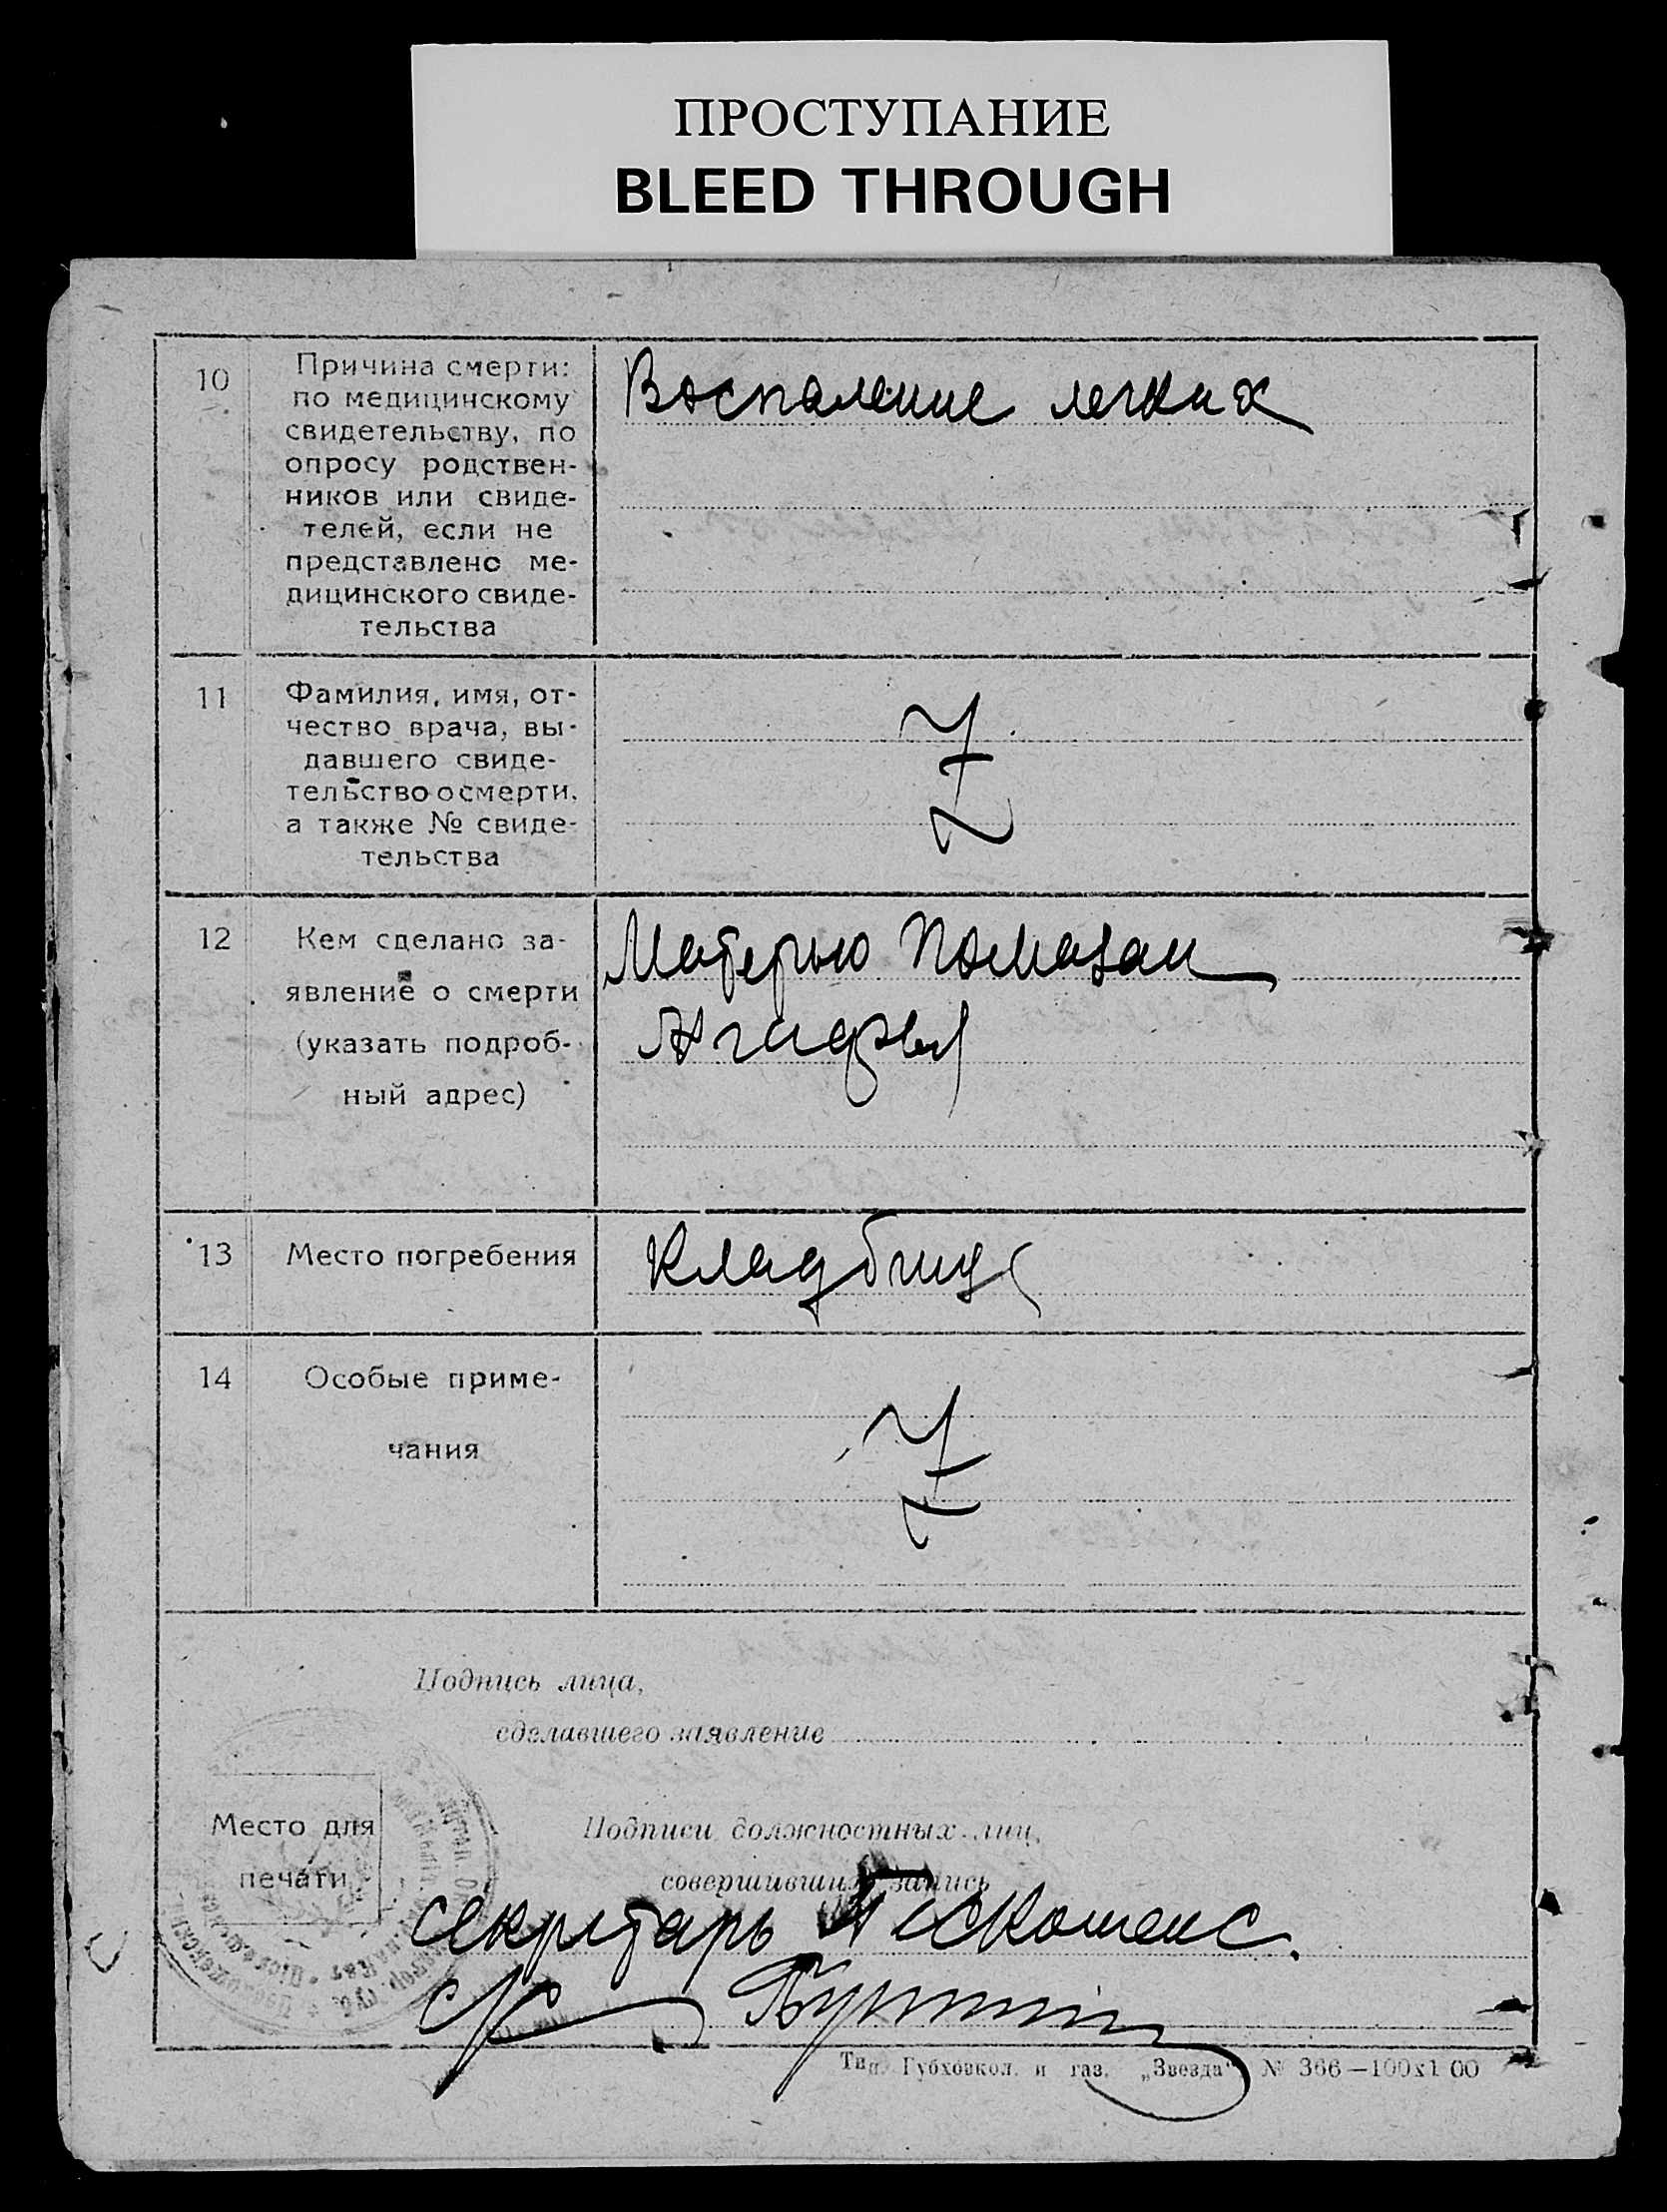 ПРОСТУПАНИЕ
BLEED THROUGH
10
Причина смерти:
по медицинскому
свидетельству, по
опросу родствен-
ников или свиде-
телей, если не
представлено ме-
дицинского свиде-
тельства
Воспаление легких
11
Фамилия, имя, от-
чество врача, вы-
давшего свиде-
тельство о смерти,
а также № свиде-
тельства
Z
12
Кем сделано за-
явление о смерти
(указать подроб-
ный адрес)
Матерью Помазан
Агафьей
13
Место погребения
Кладбище
14
Особые приме-
чания
Z
Подпись лица,
сделавшего заявление
Место для
печати
Подписи должностных лиц,
совершивших запись
секретарь
Тип. Губховкол. и газ. „Звезда“ № 366—100х1 00